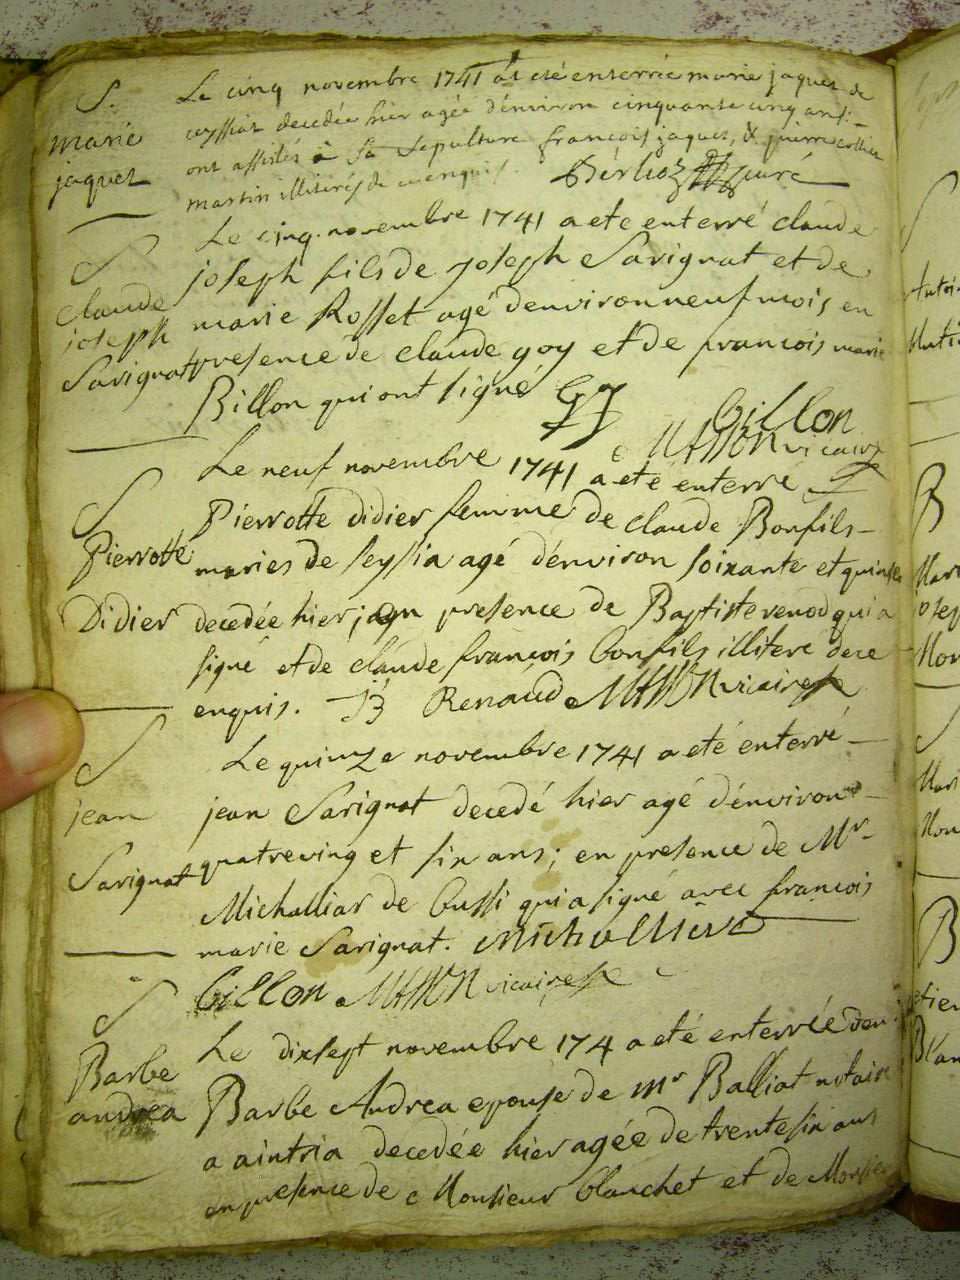 S.
marie
jaquet
Le cinq novembre 1741 at eté enterrée marie jaquet de
ceyssiat decedée hier agée d'environ cinquante cinq ans
ont assistés à sa sepulture françois jaquet, & pierre
martin illiterés de ce enquis. Berlioz curé
S
claude
joseph
Savignat
Le cinq novembre 1741 a ete enterré claude
joseph fils de joseph Savignat et de
marie Rosset agé denviron neuf mois en
presence de claude goy et de francois marie
Billon qui ont signé GJ billon
vicaire
S
Pierrotte
Didier
Le neuf novembre 1741 a eté enterré
Pierrotte Didier femme de claude Bonfils
maries de seyssia agé d'environ soixante et quinse
decedée hier, en presence de Baptiste renod qui a
signé et de claude françois bonfils illitere de ce
enquis. B Renaud vicaire
S
jean
Savignat
Le quinze novembre 1741 a eté enterré
jean Savignat decedé hier agé d'environ
quatreving et six ans; en presence de Mr
Michalliar de bussi qui a signé avec françois
marie Savignat. Michallier
billon vicaire
S
Barbe
andrea
Le dixsept novembre 174 a eté enterrée
Barbe Andrea epouse de mr Balliat notaire
a aintria decedée hier agée de trente six ans
en presence de Monsieur blanchet et de Monsieur